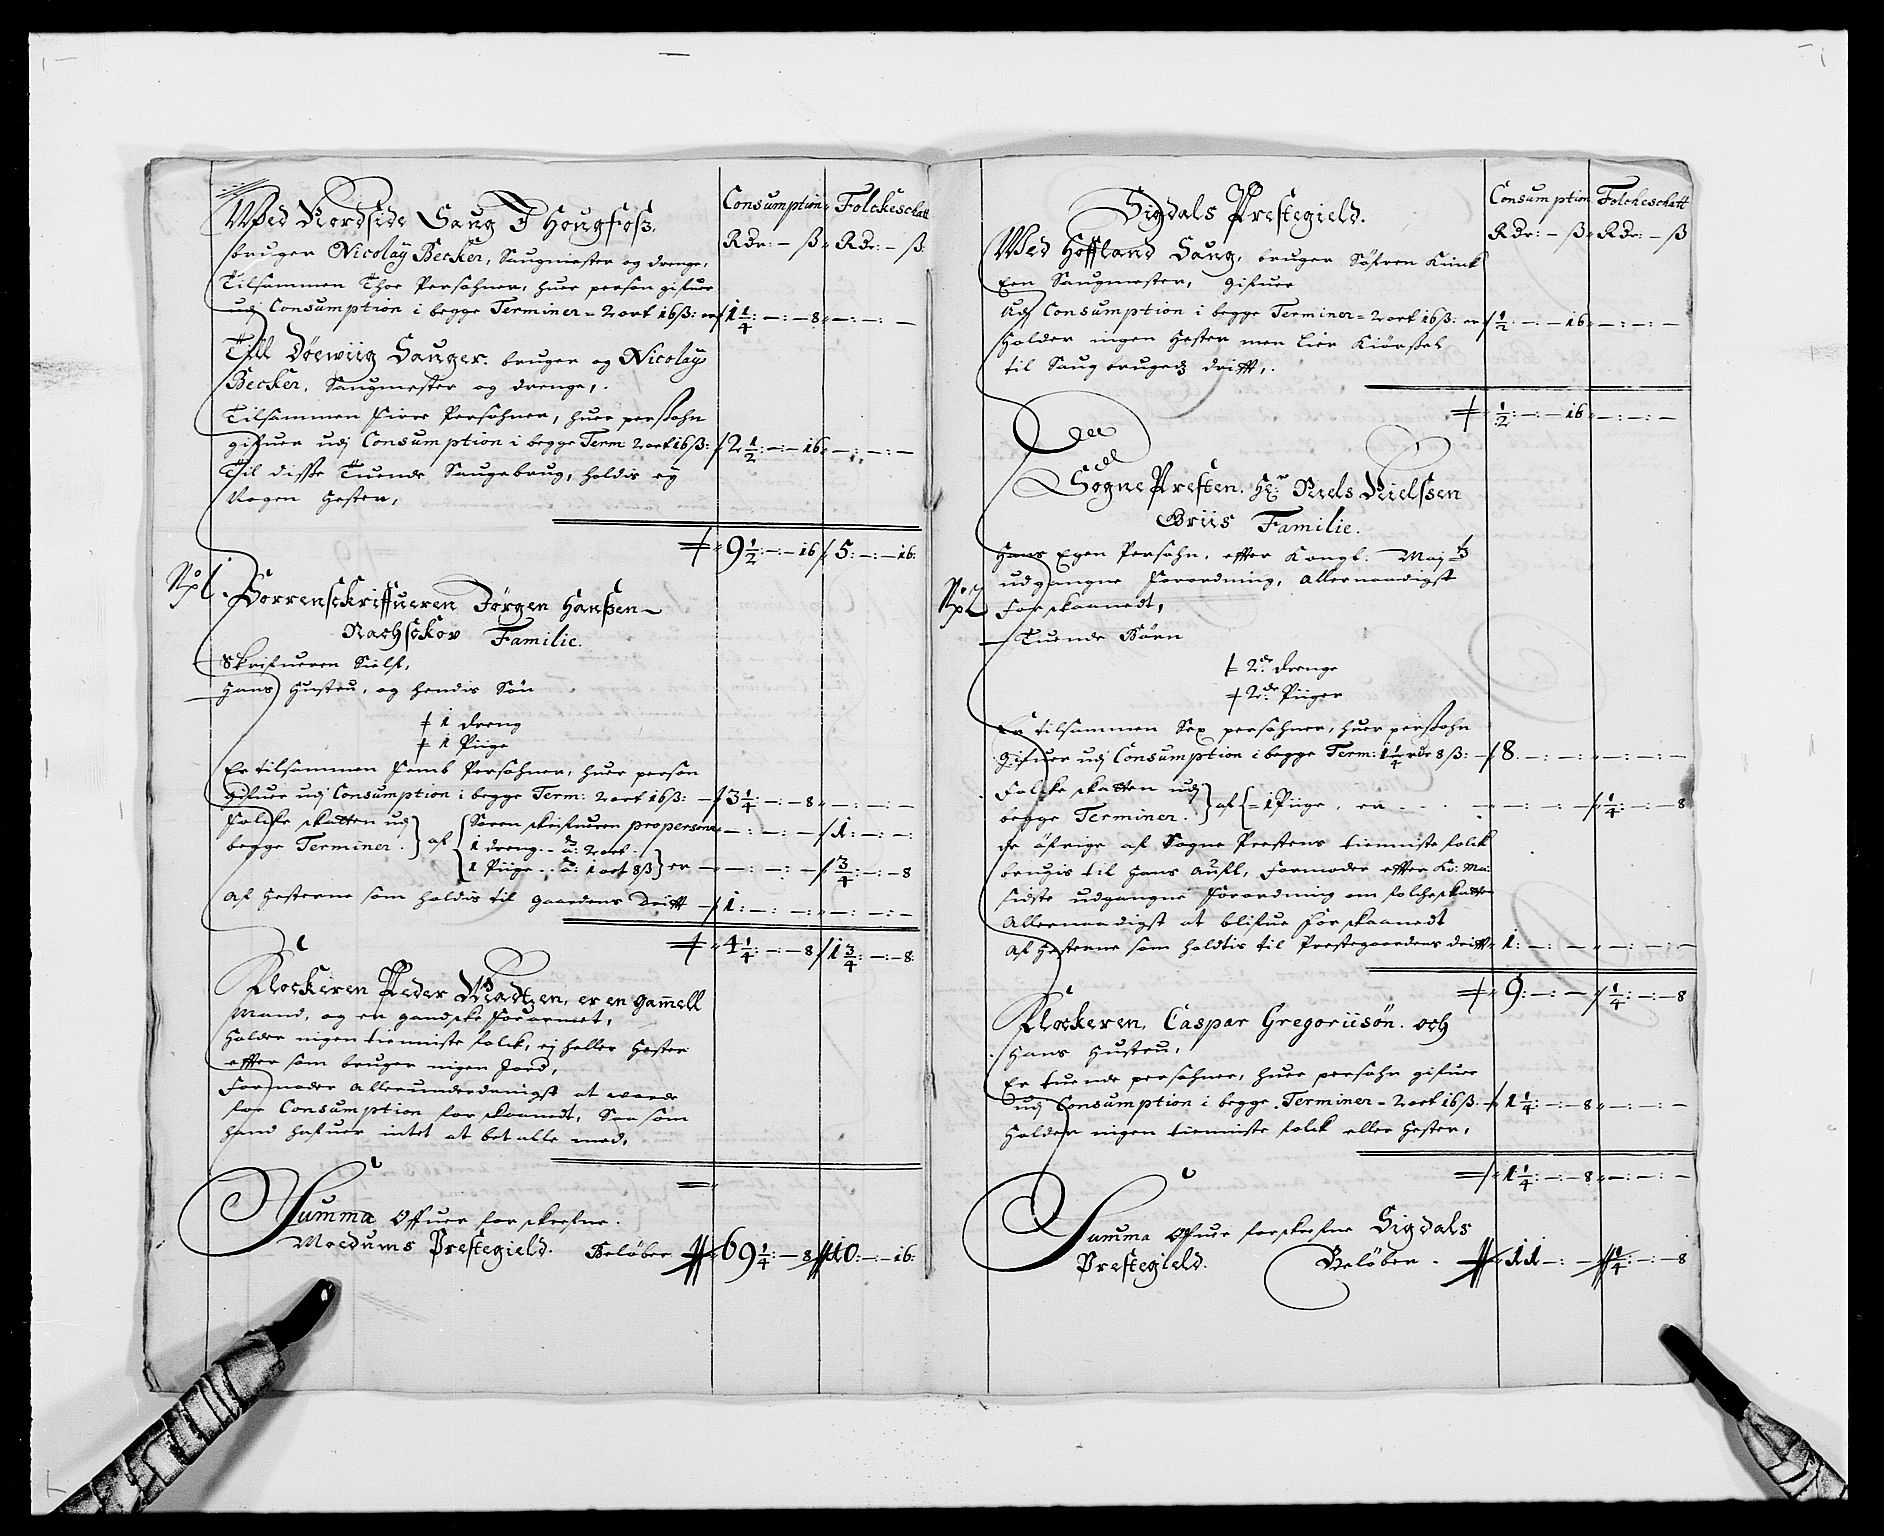 Consumption Folckeschatt
Rdr: – ß Rdr: – ß
Wed Nordside Saug I Hougfoss,
bruger Nicolaÿ Becker, Saugmester og drenge,
Tilsammen Thoe Persohner, huer person gifuer
udj Consumption i begge Terminer – 2 ort 16 ß: er 1 1/4: – : – 8 – : – : –
Till Döewiig Sauger. bruger og Nicolaÿ
Becker, Saugmester og drenge,
Tilsammen Fiire Persohner, huer perssohn
gifuer udj Consumption i begge Term: 2 ort 16 ß: 2 1/2: – : – 16 – : – : –
Til disse Tuende Saugebrug, holdis eÿ
Nogen Hester,
9 1/2: – : – 16 5: – : – 16:
Sorrensckriffueren Jørgen Hanssen
Nachsckov Familie.
Skrifueren Sielf,
Hans Hustru, og hendis Søn
1 dreng
1 Piige
Er tilsammen Femb Persohner, huer person
gifuer udj Consumption i begge Term: 2 ort 16 ß: 3 1/4: – : – 8 – : – : –
Folcke skatten udj
begge Terminer. af Soren skrifueren pro persona – : – : – 1: – : –
1 dreng – 2 ort.
1 Piige – 1 ort 8 ß er – : – : – 3/4: – : – 8
Af Hesterne som holdis til Gaardens Drifft 1: – : – : – : – : –
4 1/4: – : – 8 1 3/4: – : – 8
Klockeren Peder Madtzen, er en gamell
Mand, og en gandske forarmet,
Holder ingen tienniste folck, ej heller Hester
efftersom bruger ingen Jord,
Formoder allerunderdanigst at worde
for Consumption forskaanedt, Saasom
hand hafuer intet at betalle med,
Summa Offuer forskrefne
Modums Prestegield. Beløber 69 1/4: – 8 10: – : – 16:
Consumption Folckeschatt
Rdr: – ß Rdr: – ß
Sigdals Prestegield.
Wed Hoffland Saug, bruger Söfren Kiink
Een Saugmester, gifuer
Udj Consumption i begge Terminer – 2 ort 16 ß: er 1/2: – : – 16 – : – : –
Holder ingen Hester men leier Kiørssel
til Saug brugedz drifft,
1/2: – : – 16 – : – : –
Sogne Presten. Hr: Niels Nielssen
Briis Familie.
Hans Egen Persohn, effter Kongl. Maj:tz
udgangne Forordning, allernaadigst
Forskaanedt,
Tuende Børn
2de drenge
2de Piiger
Er tilsammen Sex persohner, huer perssohn
Gifuer udj Consumption i begge Term: 1 1/4 rdr 8 ß: 8: – : – : – : – : –
Folcke skatten udj
begge Terminer. af – 1 Piige, er – : – : – 1/4: – : – 8
de öfrige af Sogne Prestens tienniste folck
brugis til hans Aufl, formoder effter Ko: Ma:
sidste udgangne Forordning om folcheskatten
Allernaadigst at blifue forskaanedt
Af Hesterne som holdtis til Prestegaardens drifft 1: – : – – : – : –
9: – : – 1/4: – : – 8
Klockeren, Caspar Gregoriisøn. och
Hans Hustru,
Er tuende persohner, huer persohn gifuer
udj Consumption i begge Terminer – 2 ort 16 ß. 1 1/4: – : – 8 – : – : –
Holder ingen tienniste folck eller Hester,
1 1/4: – : – 8 – : – : –
Summa Ofuer forskrefne Sigdals
Prestegield. Beløber 11 – : – 1/4: – : – 8